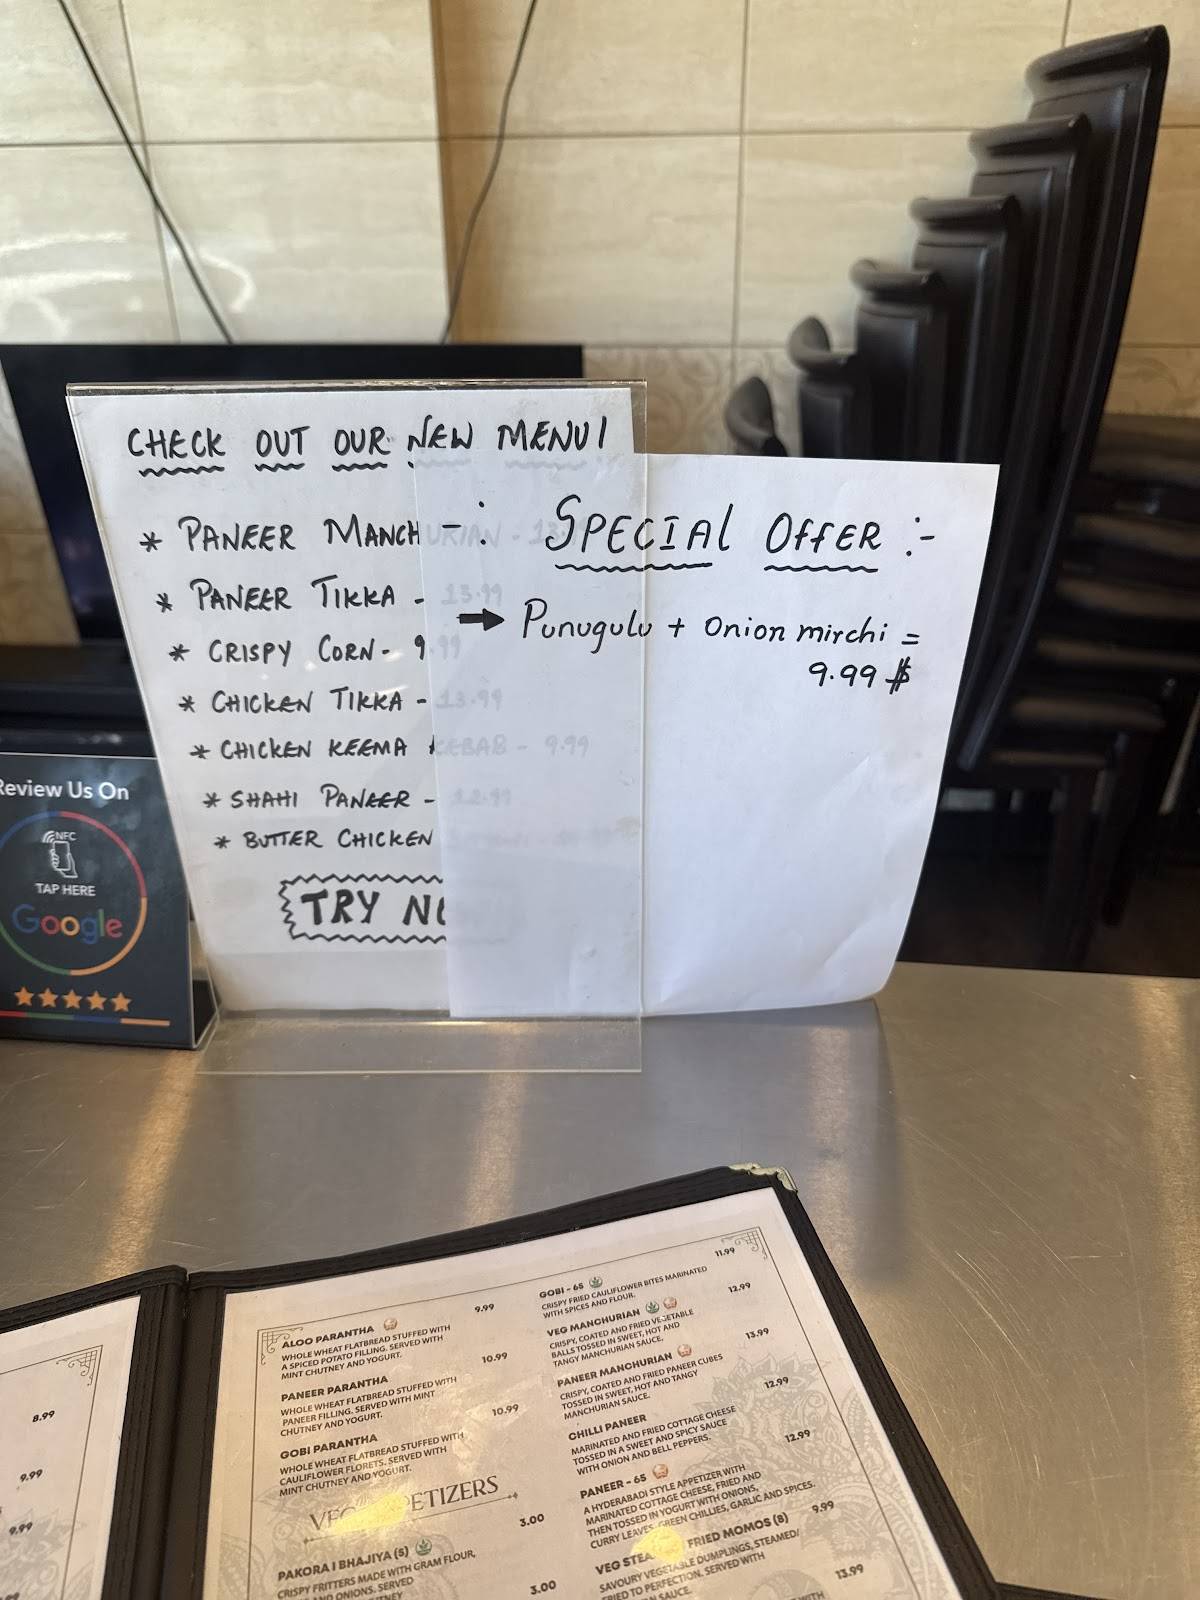 CHECK OUT OUR NEW MENU!
* PANEER MANCHURIAN - 13.99
* PANEER TIKKA - 13.99
* CRISPY CORN - 9.99
* CHICKEN TIKKA - 13.99
* CHICKEN KEEMA KEBAB - 9.99
* SHAHI PANEER - 12.99
* BUTTER CHICKEN
TRY
-: SPECIAL OFFER :-
→ Punugulu + Onion mirchi =
9.99 $
Review Us On
NFC
TAP HERE
Google
8.99
9.99
9.99
ALOO PARANTHA 9.99
WHOLE WHEAT FLATBREAD STUFFED WITH
A SPICED POTATO FILLING. SERVED WITH
MINT CHUTNEY AND YOGURT.
PANEER PARANTHA 10.99
WHOLE WHEAT FLATBREAD STUFFED WITH
PANEER FILLING. SERVED WITH MINT
CHUTNEY AND YOGURT.
GOBI PARANTHA 10.99
WHOLE WHEAT FLATBREAD STUFFED WITH
CAULIFLOWER FLORETS. SERVED WITH
MINT CHUTNEY AND YOGURT.
VEG APPETIZERS
PAKORA I BHAJIYA (5) 3.00
CRISPY FRITTERS MADE WITH GRAM FLOUR,
AND ONIONS. SERVED
3.00
GOBI - 65 11.99
CRISPY FRIED CAULIFLOWER BITES MARINATED
WITH SPICES AND FLOUR.
VEG MANCHURIAN 12.99
CRISPY, COATED AND FRIED VEGETABLE
BALLS TOSSED IN SWEET, HOT AND
TANGY MANCHURIAN SAUCE.
PANEER MANCHURIAN 13.99
CRISPY, COATED AND FRIED PANEER CUBES
TOSSED IN SWEET, HOT AND TANGY
MANCHURIAN SAUCE.
CHILLI PANEER 12.99
MARINATED AND FRIED COTTAGE CHEESE
TOSSED IN A SWEET AND SPICY SAUCE
WITH ONION AND BELL PEPPERS.
PANEER - 65 12.99
A HYDERABADI STYLE APPETIZER WITH
MARINATED COTTAGE CHEESE, FRIED AND
THEN TOSSED IN YOGURT WITH ONIONS,
CURRY LEAVES, GREEN CHILLIES, GARLIC AND SPICES.
VEG FRIED MOMOS (8) 9.99
SAVOURY VEGETABLE DUMPLINGS, STEAMED/
FRIED TO PERFECTION. SERVED WITH
SAUCE.
13.99
WITH